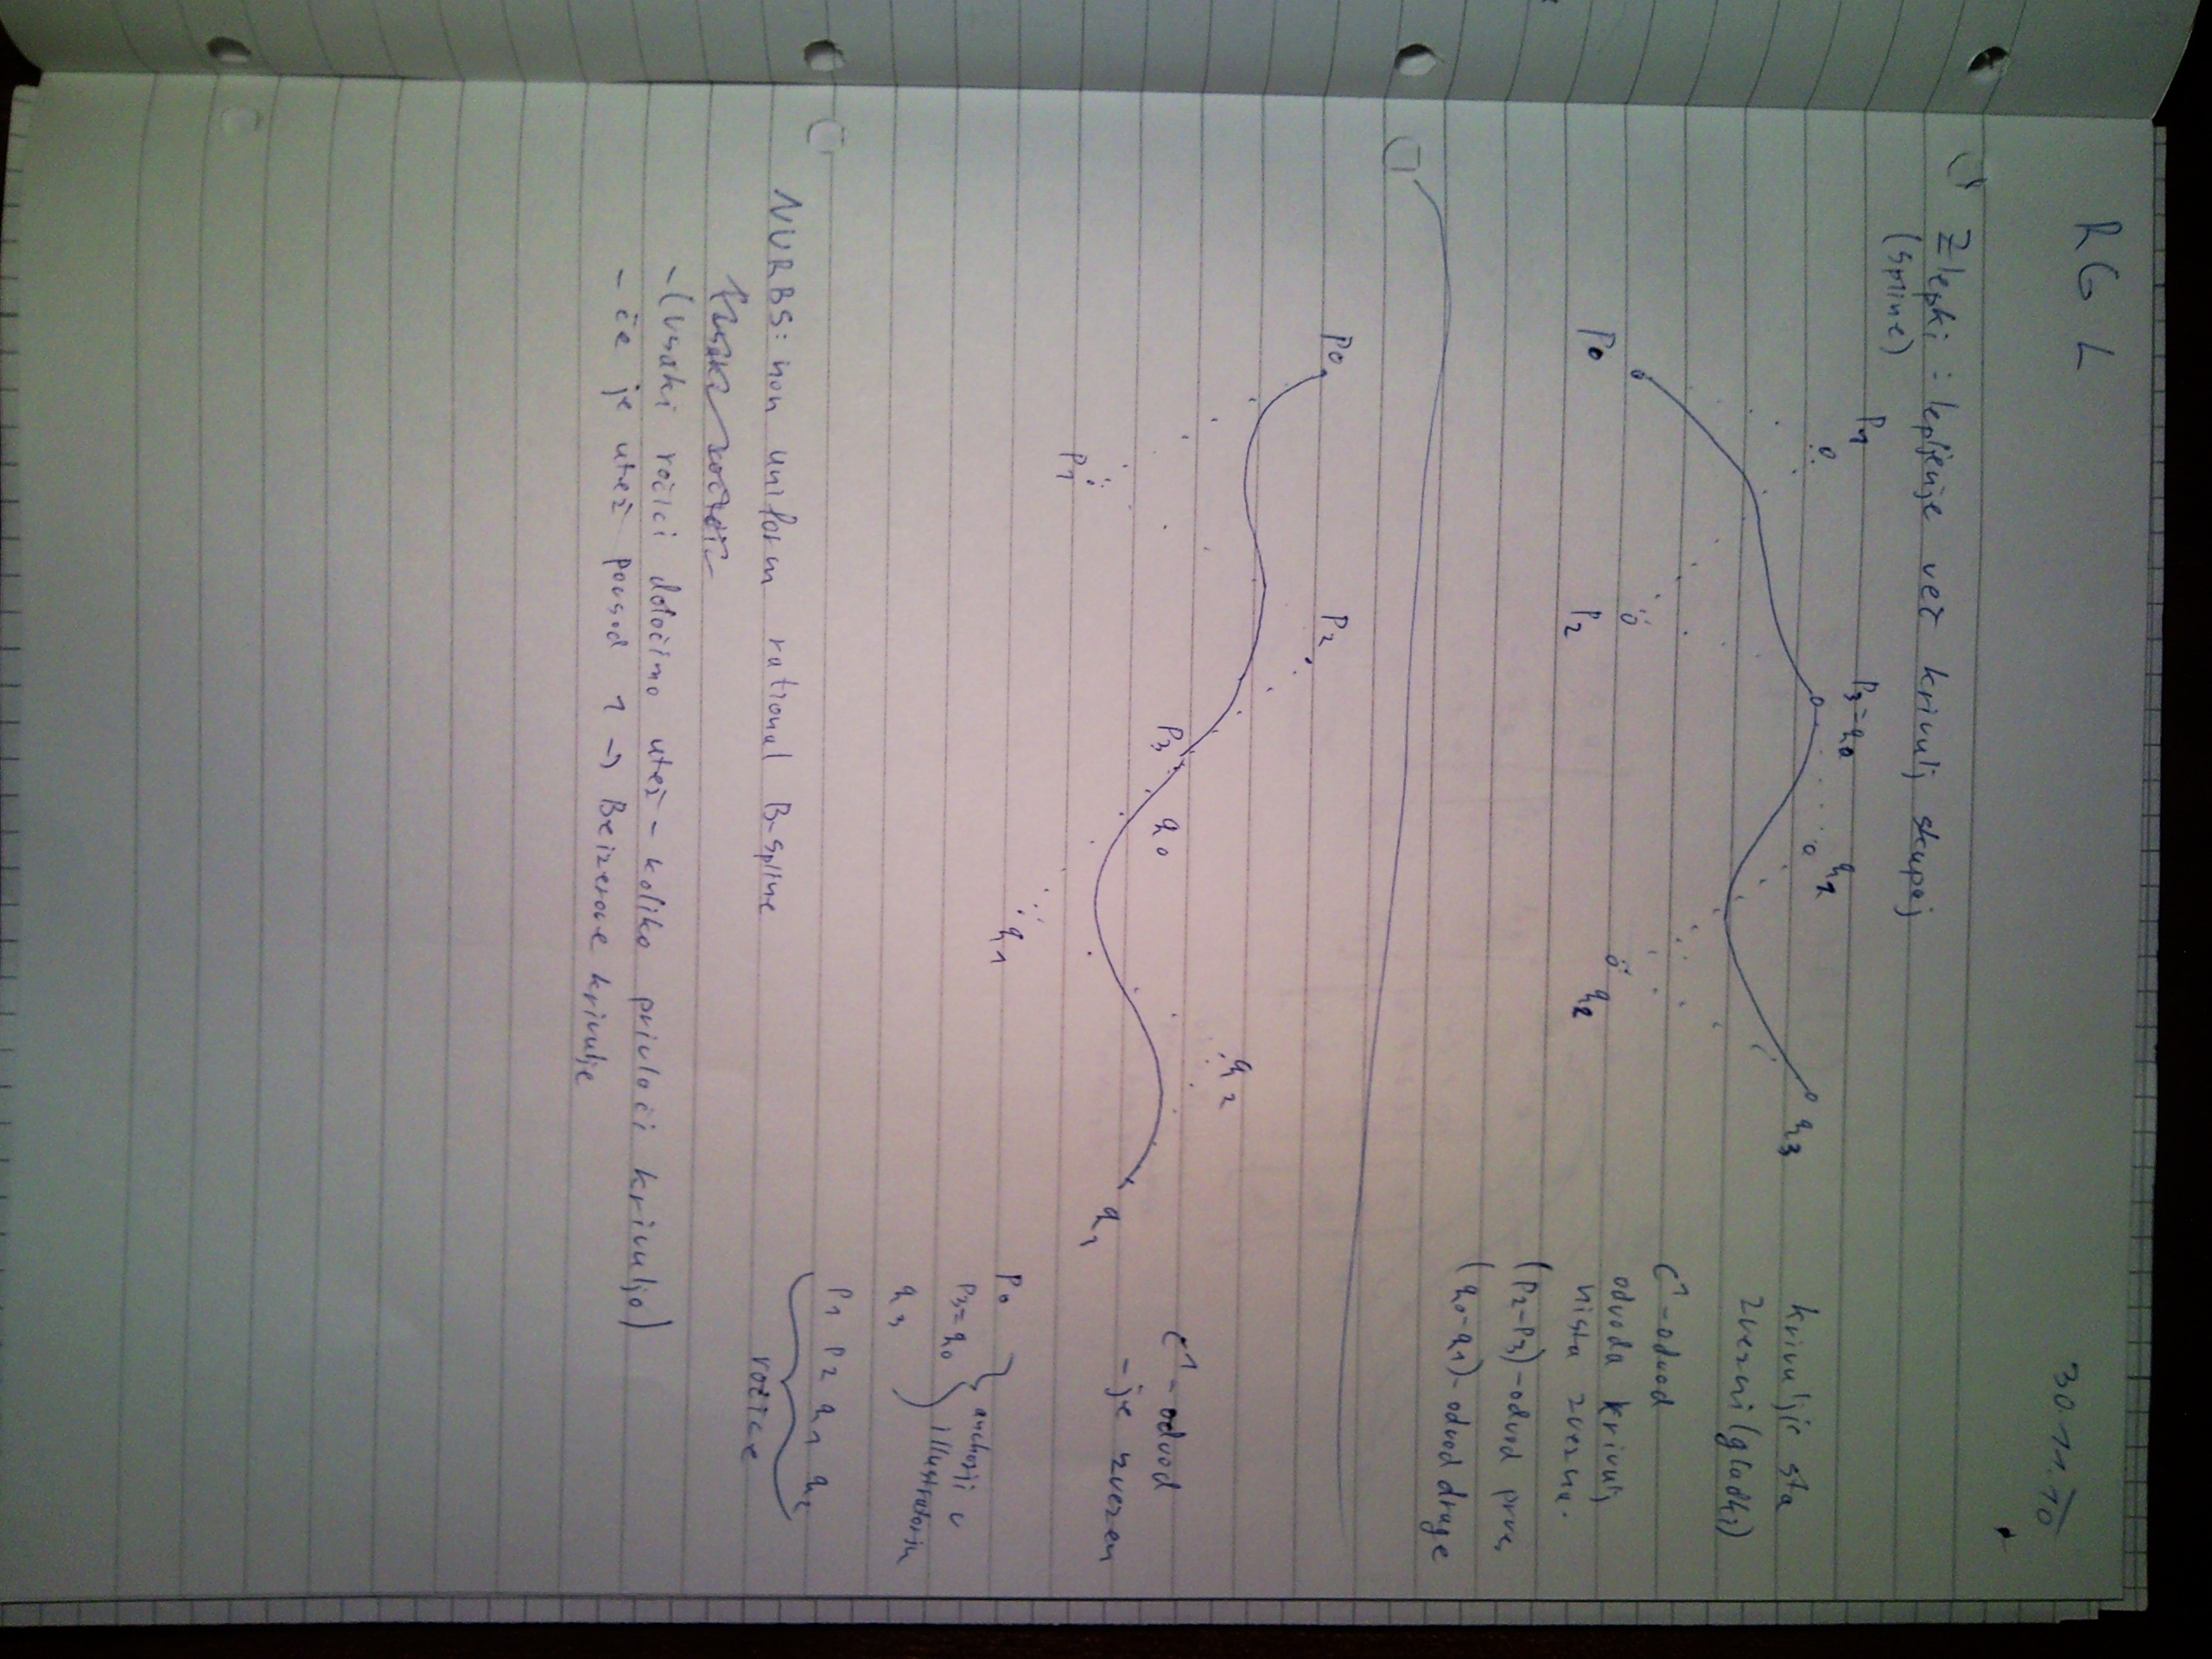 RG L
30.11.10
Zlepki : lepljenje več krivulj skupaj
(spline)
P1
P3=q0
q1
q3
P0
P2
q2
krivulji sta
zvezni (gladki)
C1-odvod
odvoda krivulj
nista zvezna.
(P2-P3)-odvod prve,
(q0-q1)-odvod druge
P0
P2
P3
q0
q2
P1
q1
q3
C1-odvod
- je zvezen
P0
P3=q0
q3
anchorji v
illustratorju
P1 P2 q1 q2
ročice
NURBS: non uniform rational B-spline
- (vsaki ročici določimo utež - koliko privlači krivuljo)
- če je utež povsod 1 → Beizerove krivulje